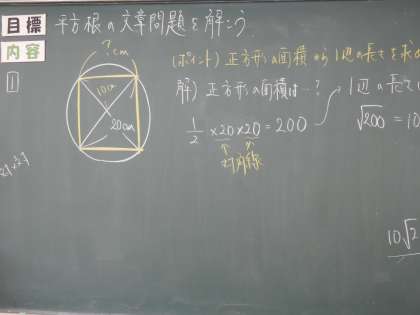 目標
平方根の文章問題を解こう
内容
1
?cm
10cm
20cm
(ポイント) 正方形の面積から1辺の長さを求め
解) 正方形の面積は…?
1/2 ×20×20=200
対角線
1辺の長さ
√200 = 10
10√2